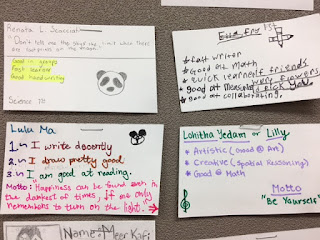 Renata L. Scacciati
"Don't tell me the sky's the limit when there
are footprints on the moon."
Good in groups
Fast learner
Good handwriting
Science !!!
1st
* fast writer
* Good at math
* quick learner & friends
* good at measuring & pick flowers
* good at collaborating.
Lulu Ma
1. I write decently
2. I draw pretty good
3. I am good at reading.
Motto: Happiness can be found even in
the darkest of times, if one only
remembers to turn on the light.
Lohitha Yedam or Lilly
* Artistic (Good @ Art)
* Creative (Spatial Reasoning)
* Good @ Math
Motto
"Be Yourself"
Name: Meer Kafi